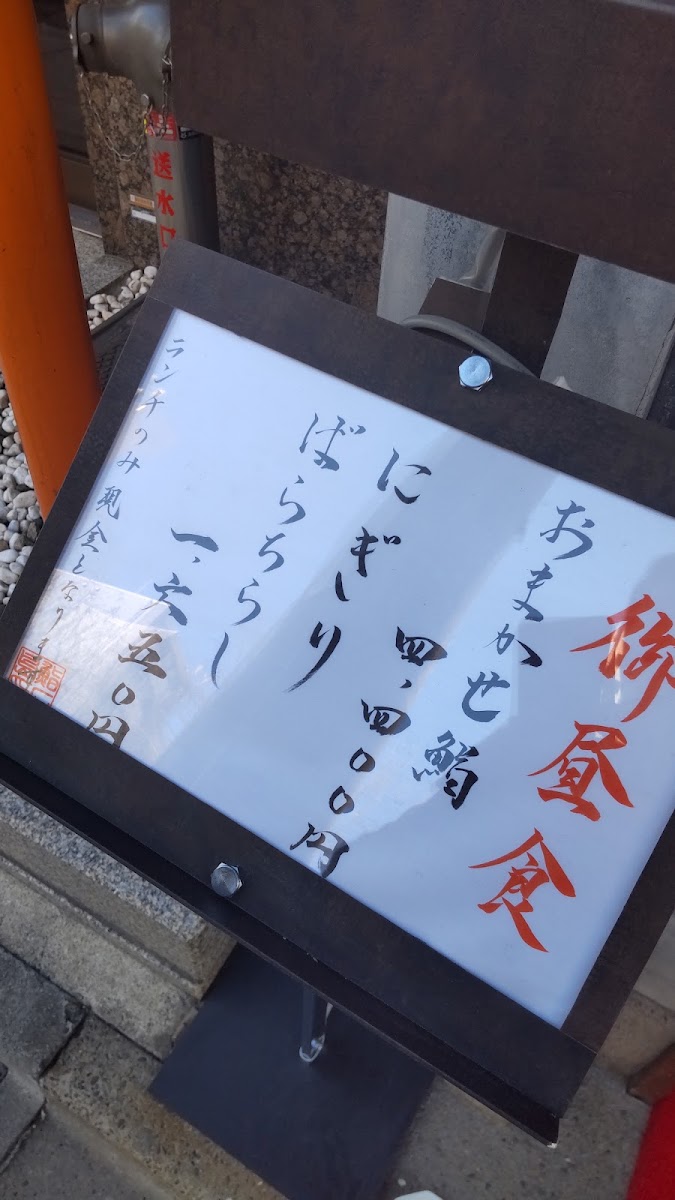 御昼食
おまかせ鮨
にぎり
四、四〇〇円
ばらちらし
一、六五〇円
ランチのみ現金となります
送水口